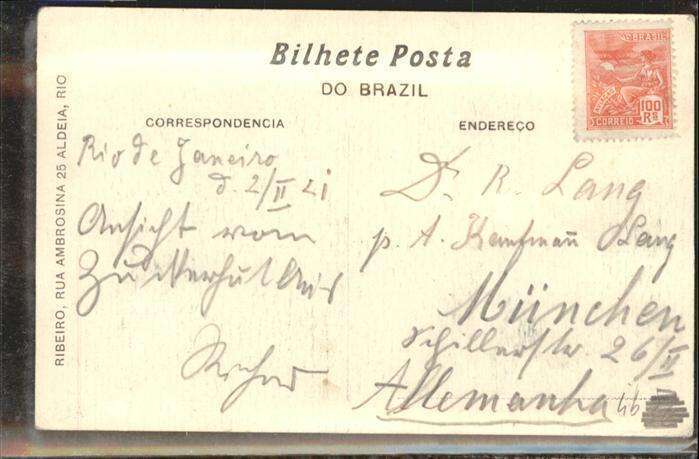 Bilhete Posta
DO BRAZIL
BRASIL
100
Rs
CORREIO
CORRESPONDENCIA
ENDEREÇO
RIBEIRO, RUA AMBROSINA 25 ALDEIA, RIO
Rio de Janeiro
d. 2/II 21
Ansicht vom
Dr. R. Lang
p. A. Kaufmann Lang
München
Schillerstr 26/II
Allemanha